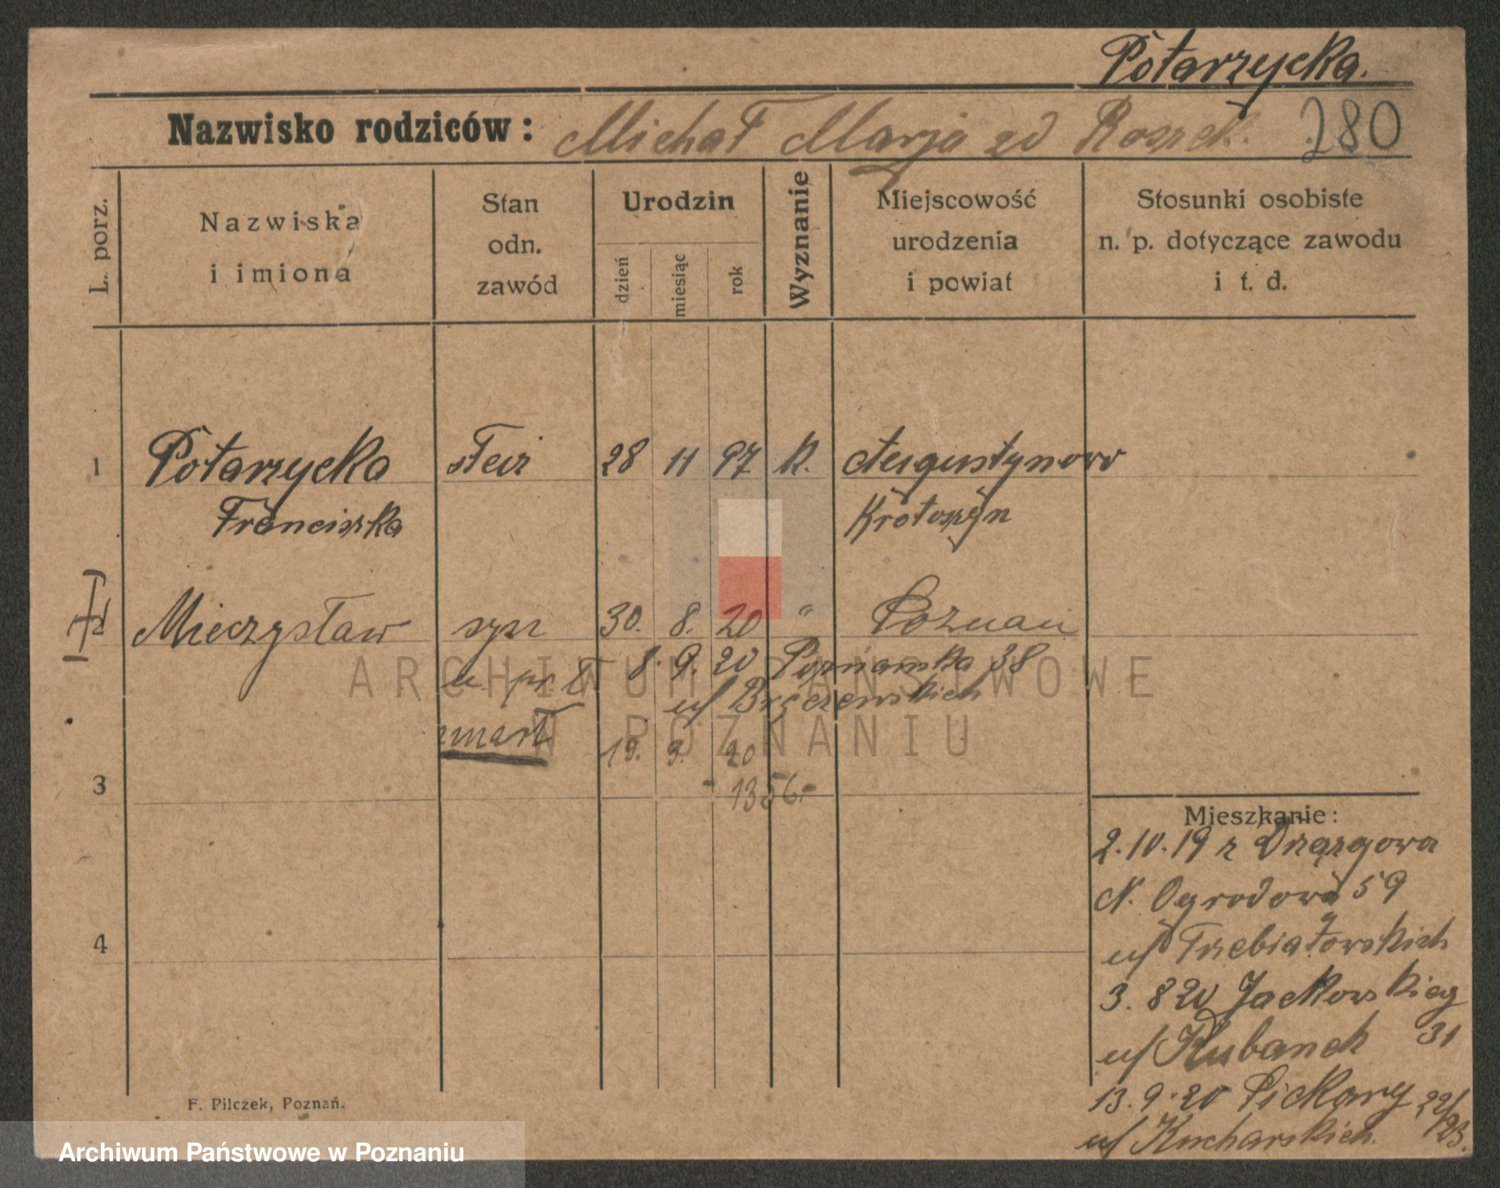 Potarzycka.
Nazwisko rodziców: Michał Marja zd Roszek. 280
L. porz.
Nazwiska i imiona
Stan odn. zawód
Urodzin
dzień
miesiąc
rok
Wyznanie
Miejscowość urodzenia i powiat
Stosunki osobiste n. p. dotyczące zawodu i t. d.
1 Potarzycka 28 11 97 K. Augustynowo
Franciszka Krotoszyn
Mieczysław syn 30. 8. 20 " Poznań
8. 9. 20 Poznańska 38
u/ Brzezewskich
zmarł 19. 9. 20
1356
3
4
Mieszkanie:
2.10.19 z Drązgowa
N. Ogrodowa 59
u/ Trzebiatowskich
3. 8 20 Jackowskieg
31
u/ Kubanek
13.9.20 Piekary 22/23.
u/ Kucharskich.
F. Pilczek, Poznań.
ARCHIWUM PAŃSTWOWE
W POZNANIU
Archiwum Państwowe w Poznaniu